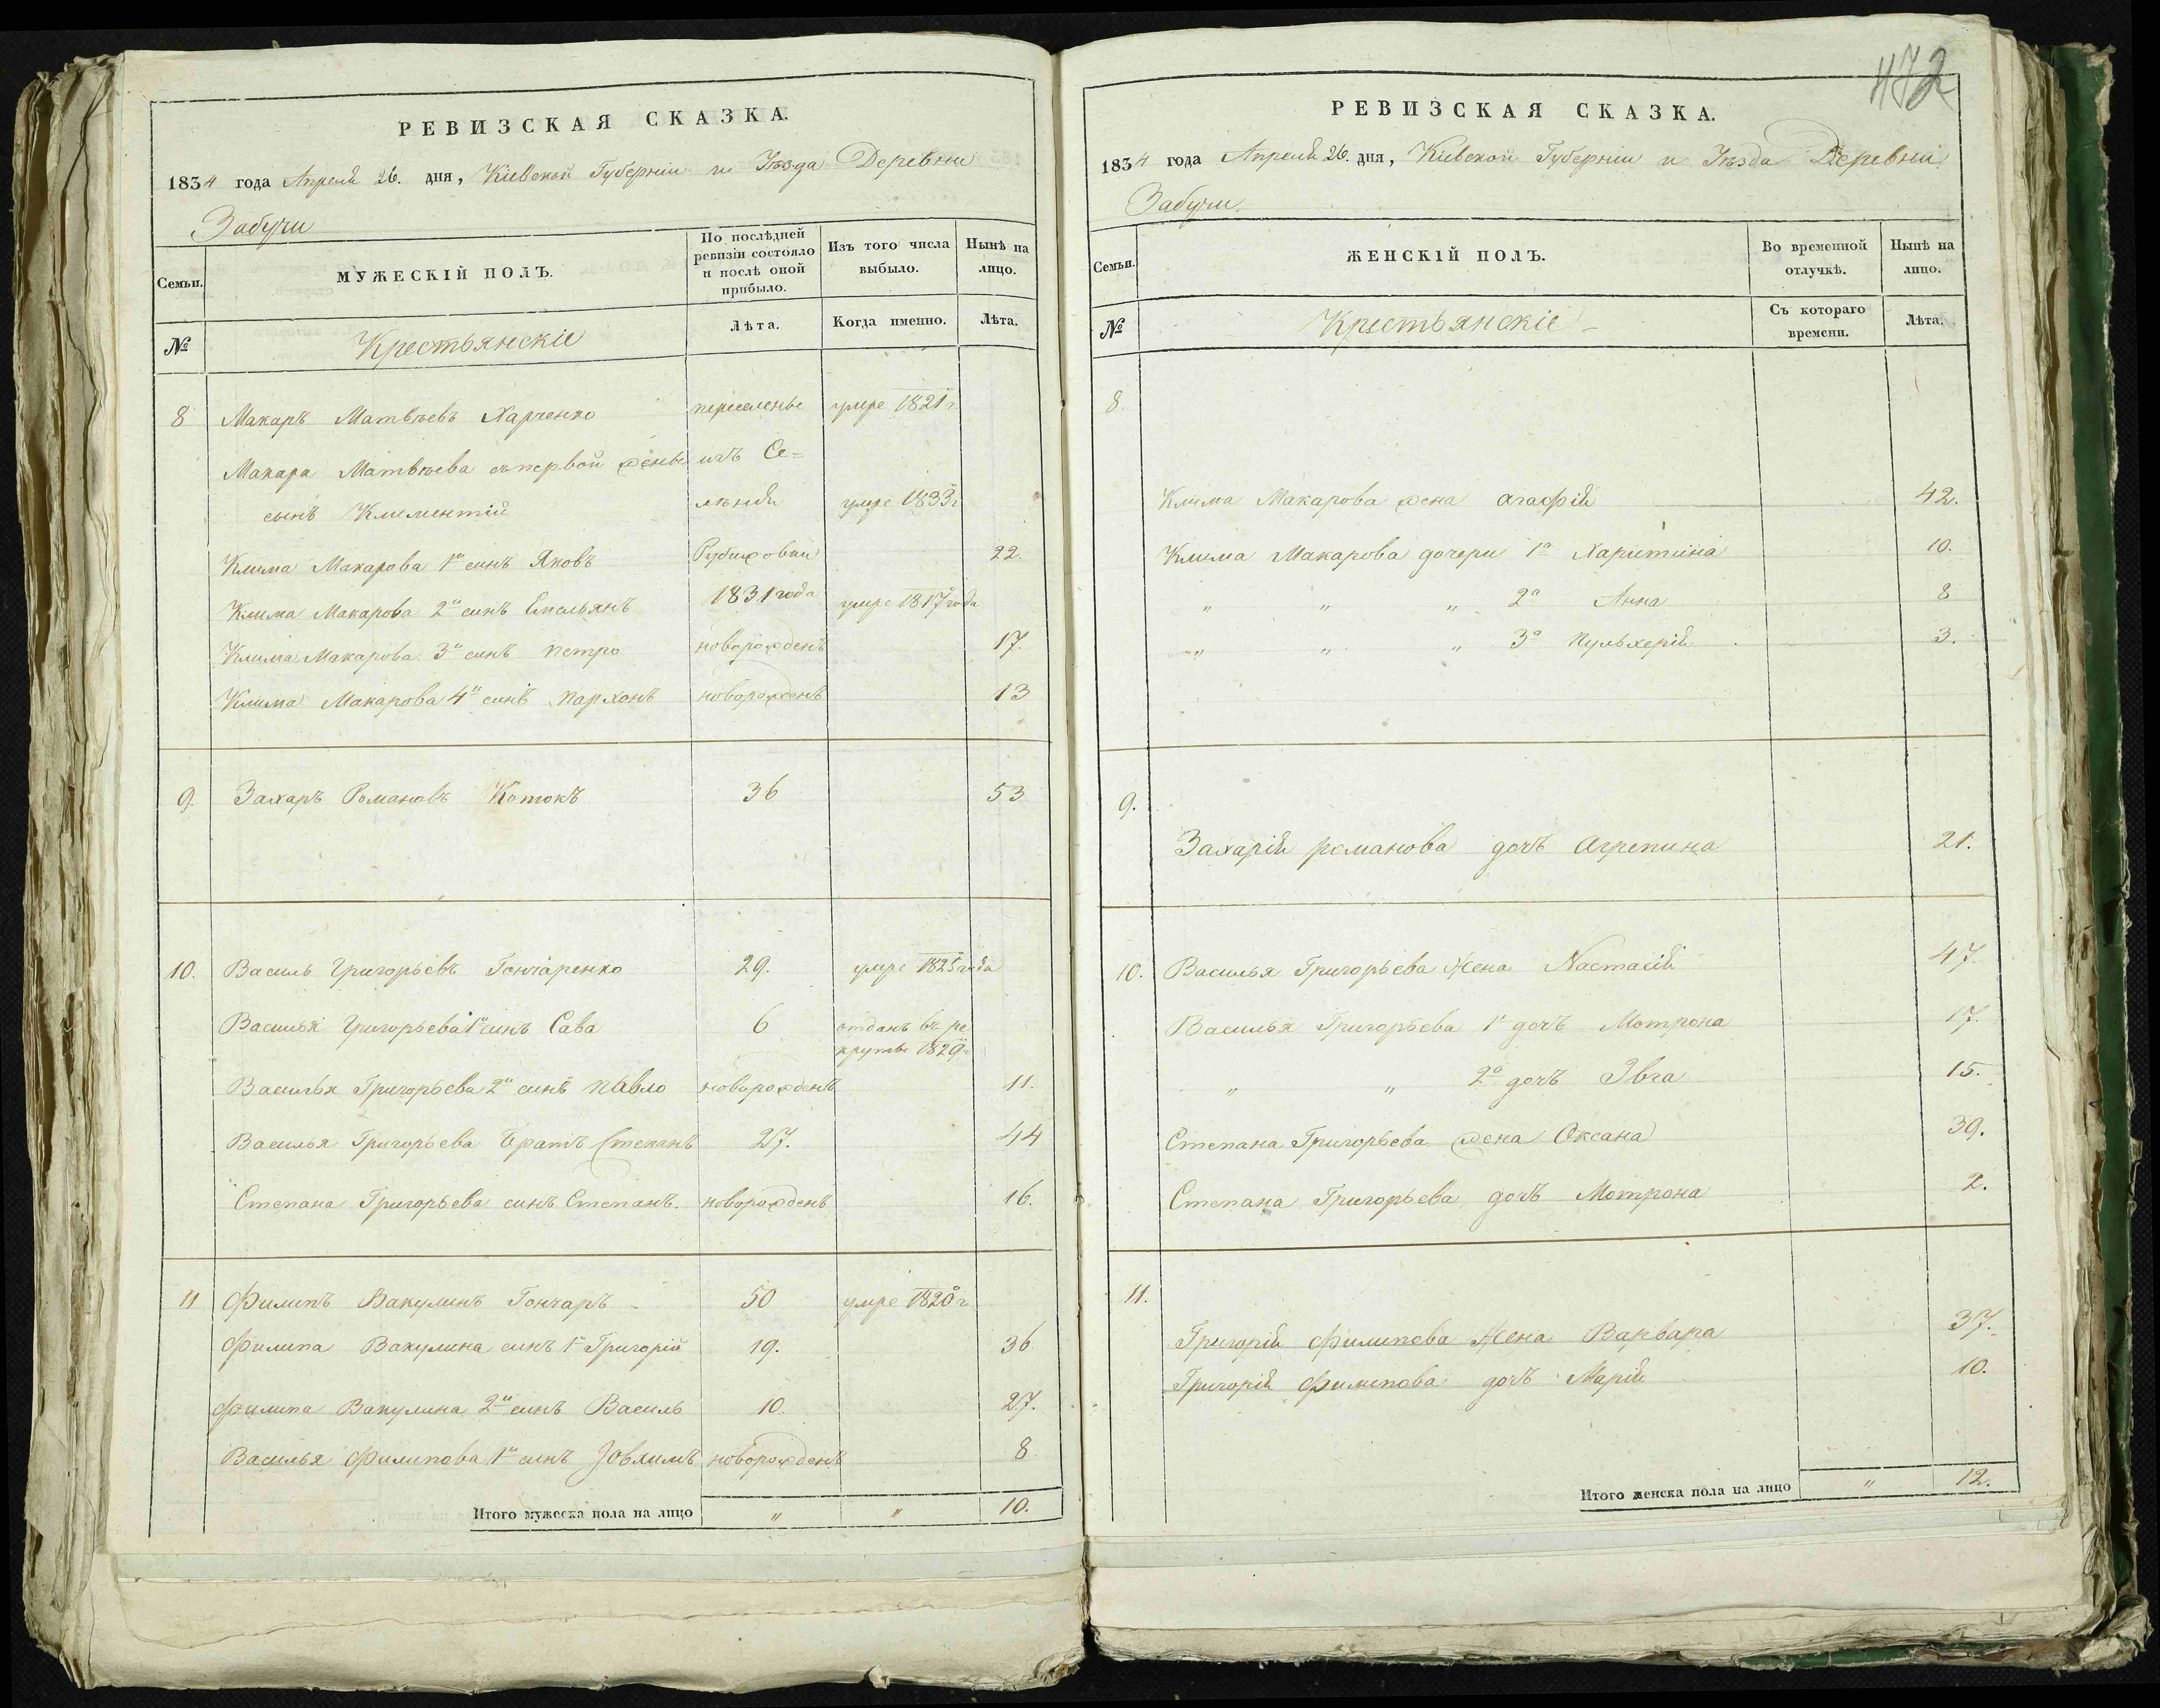 472
РЕВИЗСКАЯ СКАЗКА.
1834 года Апреля 26. дня, Кіевской Губерніи и Уѣзда Деревни
Забучи
Семьи.
МУЖЕСКІЙ ПОЛЪ.
По послѣдней ревизіи состояло и послѣ оной прибыло.
Изъ того числа выбыло.
Нынѣ на лицо.
№
Крестьянскіе
Лѣта.
Когда именно.
Лѣта.
8 Макаръ Матвѣевъ Харченко переселенъ умре 1821г.
Макара Матвѣева съ первой жены изъ Се=
сынъ Климентій ленія умре 1833г
Клима Макарова 1й синъ Яковъ 22.
Клима Макарова 2й синъ Емельянъ 1831 года умре 1817 года
Клима Макарова 3й синъ Петро новорожденъ 17.
Клима Макарова 4й синъ Пархонъ новорожденъ 13
9. Захаръ Романовъ Котокъ 36 53
10. Василь Григорьевъ Гончаренко 29. умре 1825 года
Василья Григорьева 1й синъ Сава 6 отданъ въ ре
круты 1829г
Василья Григорьева 2й синъ Павло новорожденъ 11.
Василья Григорьева братъ Степанъ 27. 44
Степана Григорьева синъ Степанъ. новорожденъ 16.
11 Филипъ Вакулинъ Гончаръ 50 умре 1820г
Филипа Вакулина синъ 1й Григорій 19. 36
Филипа Вакулина 2й синъ Василь 10. 27.
Василья Филипова 1й синъ Іовхимъ новорожденъ 8
Итого мужеска пола на лицо " " 10.
РЕВИЗСКАЯ СКАЗКА.
1834 года Апреля 26. дня, Кіевской Губерніи и Уѣзда Деревни
Забучи.
Семьи.
ЖЕНСКІЙ ПОЛЪ.
Во временной отлучкѣ.
Нынѣ на лицо.
№
Крестьянскіе
Съ котораго времени.
Лѣта.
8.
Клима Макарова жена Агафія 42.
Клима Макарова дочери 1а Харитина 10.
" " " 2а Анна 8
" " " 3а Пульхерія 3.
9.
Захарія Романова дочъ Агрепина 21.
10. Василья Григорьева жена Настасія 47.
Василья Григорьева 1я дочъ Мотрона 17.
" " 2а дочъ Эвга 15.
Степана Григорьева жена Оксана 39.
Степана Григорьева дочъ Мотрона 2.
11.
Григорія Филипова жена Варвара 37.
Григорія Филипова дочъ Марія 10.
Итого женска пола на лицо " 12.